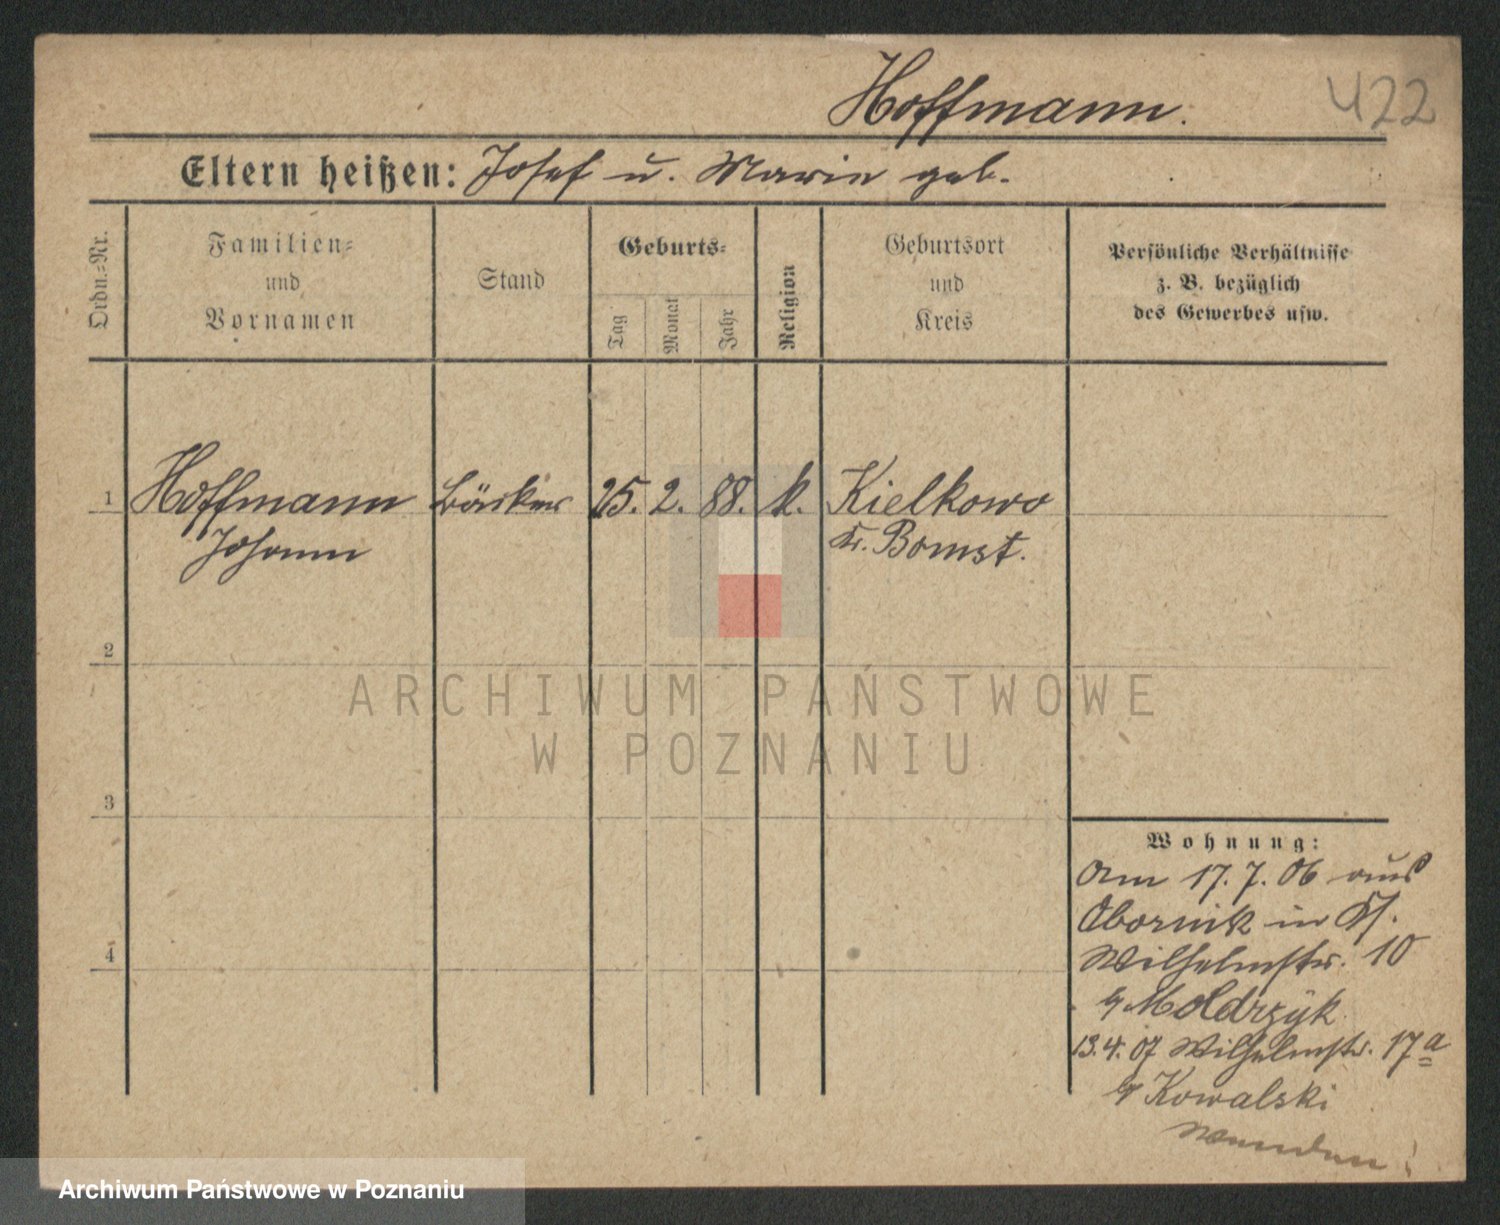 Hoffmann. 422
Eltern heißen: Josef u. Marie geb.
Ordn.=Nr.
Familien=
und
Vornamen
Stand
Geburts=
Tag
Monat
Jahr
Religion
Geburtsort
und
Kreis
Persönliche Verhältnisse
z. B. bezüglich
des Gewerbes usw.
1 Hoffmann Bäcker 25. 2. 88. k. Kielkowo
Johann Kr. Bomst.
2
3
4
Wohnung:
Am 17. 7. 06 aus
Obornik in
Wilhelmstr. 10
Moldrzyk
13. 4. 07 Wilhelmstr. 17a
Kowalski
Wenden!
ARCHIWUM PAŃSTWOWE
W POZNANIU
Archiwum Państwowe w Poznaniu